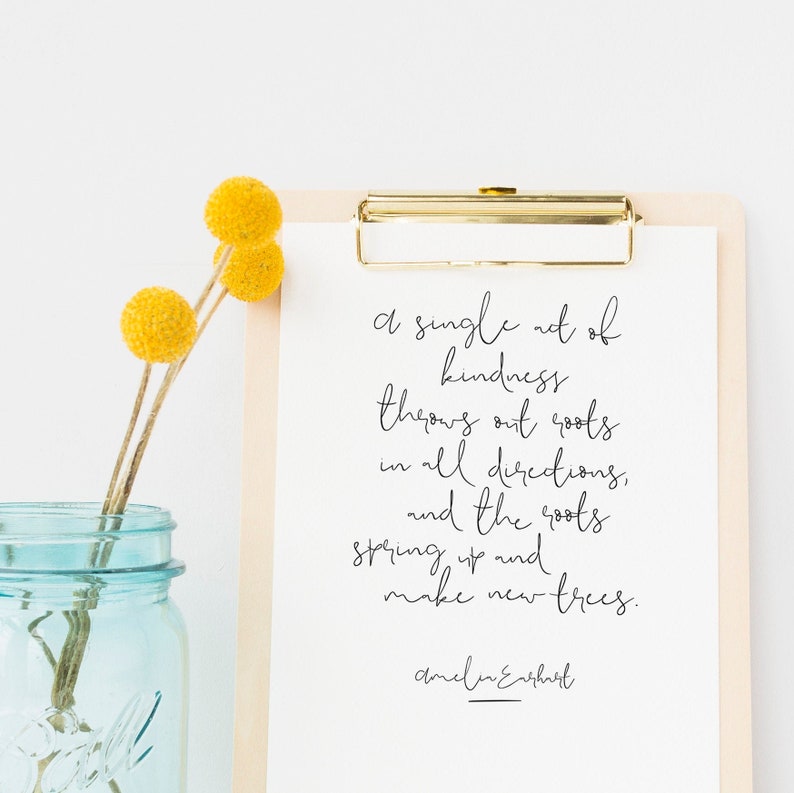 a single act of
kindness
throws out roots
in all directions,
and the roots
spring up and
make new trees.
Amelia Earhart
Ball